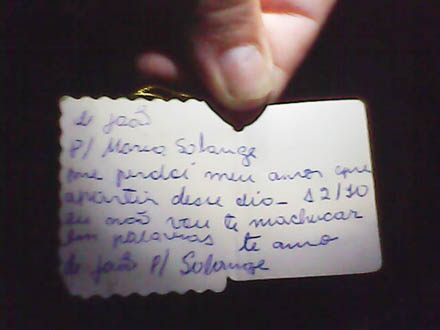 de joão
P/ Maria Solange
me perdoi meu amor que
apartir desse dia - 12/10
eu não vou te machucar
em palavras te amo
de joão P/ Solange